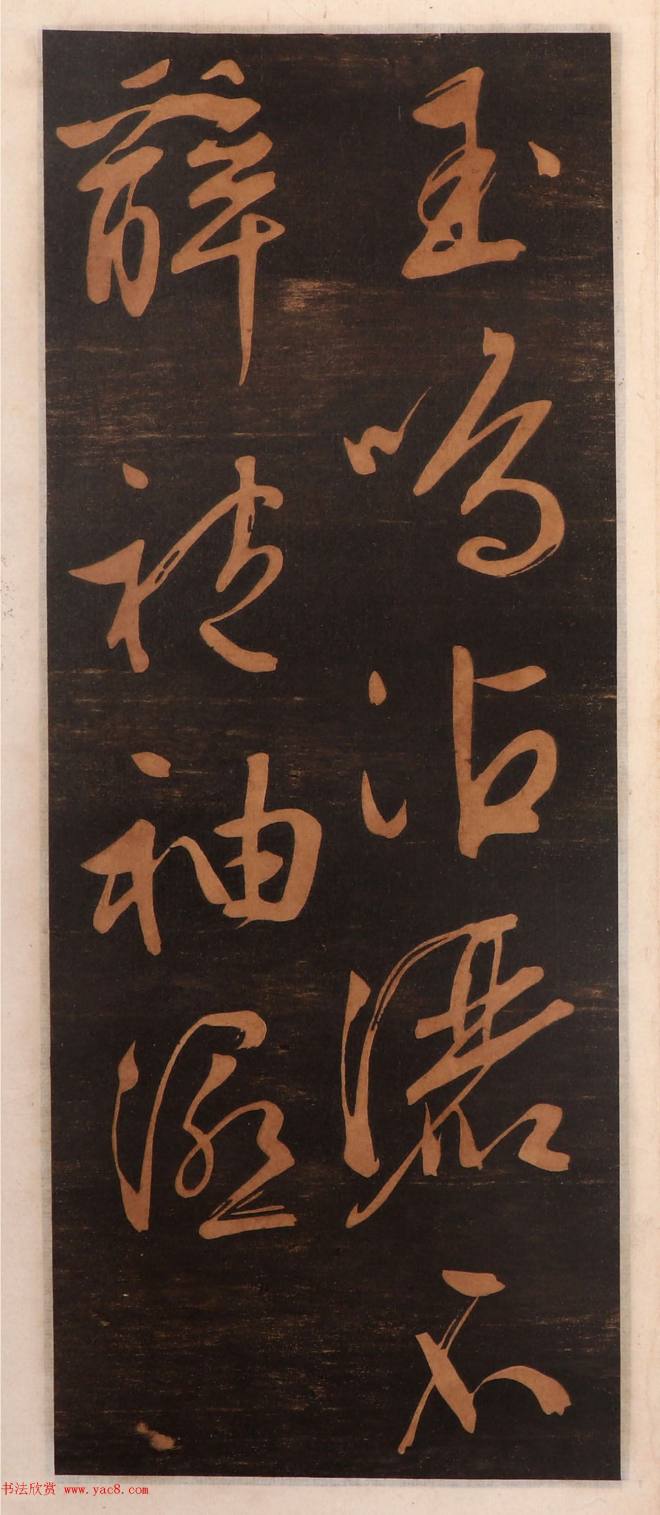 玉鳴沾灑不
辭襟袖濕
书法欣赏 www.yac8.com